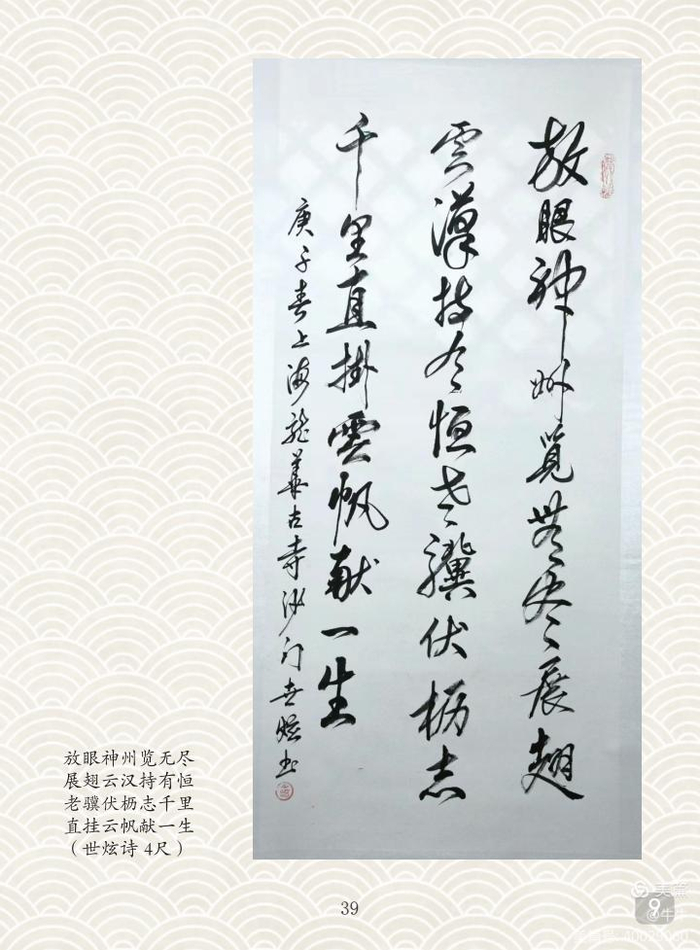 放眼神州覽無尽展翅
雲漢持有恒老驥伏枥志
千里直掛雲帆献一生
庚子春上海龍華古寺沙门世炫书
放眼神州览无尽
展翅云汉持有恒
老骥伏枥志千里
直挂云帆献一生
（世炫诗 4尺）
39
美篇
9
@牛